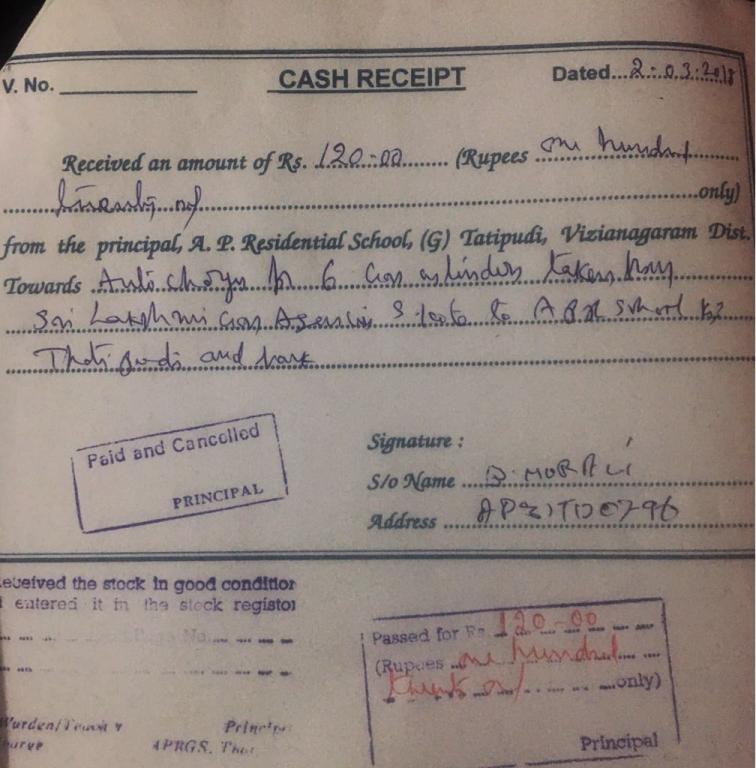 V. No.
CASH RECEIPT
Dated...2-03-2018
Received an amount of Rs. 120-00 (Rupees one hundred
only)
from the principal, A. P. Residential School, (G) Tatipudi, Vizianagaram Dist.
Towards Auto charges for 6 Gas cylinders taken from
Sri Lakshmi Gas Agencies S kota to school
and back
Paid and Cancelled
PRINCIPAL
Signature :
S/o Name B. MURALI
Address AP31TD0796
eceived the stock in good condition
entered it in the stock register
Page No.
Passed for Rs 120-00
(Rupees one hundred
twenty only)
Principal
Warden/
Principal
APRGS,